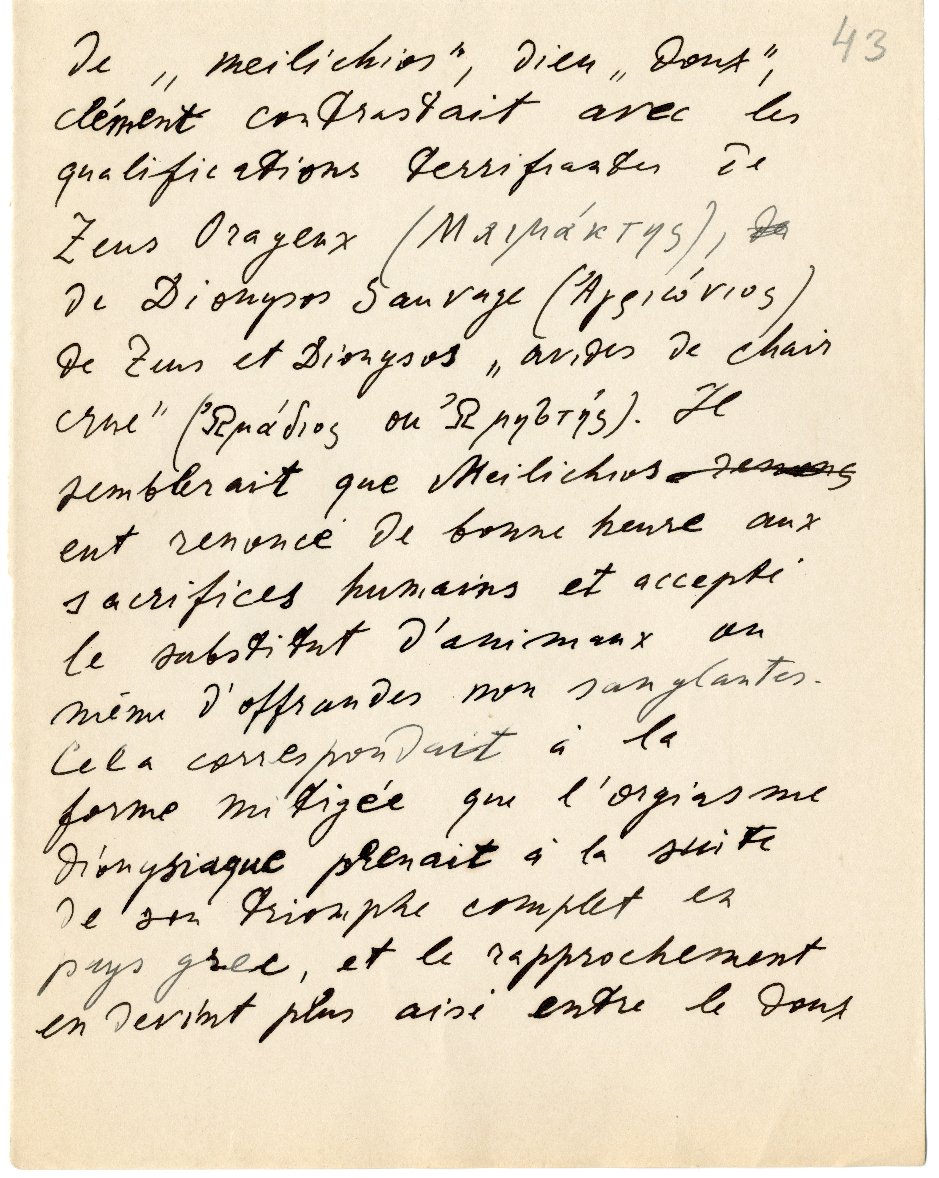 43
de „ meilichios", dieu „ doux",
clément contrastait avec les
qualifications terrifiantes de
Zeus Orageux (Μαιμάκτης), de
de Dionysos Sauvage (Ἀγριώνιος)
de Zeus et Dionysos „ avides de chair
crue" (Ὠμάδιος ou Ὠμηστής). Il
semblerait que Meilichios renonç
eut renoncé de bonne heure aux
sacrifices humains et accepté
le substitut d'animaux ou
même d'offrandes non sanglantes.
Cela correspondait à la
forme mitigée que l'orgiasme
dionysiaque prenait à la suite
de son triomphe complet en
pays grec, et le rapprochement
en devint plus aisé entre le doux